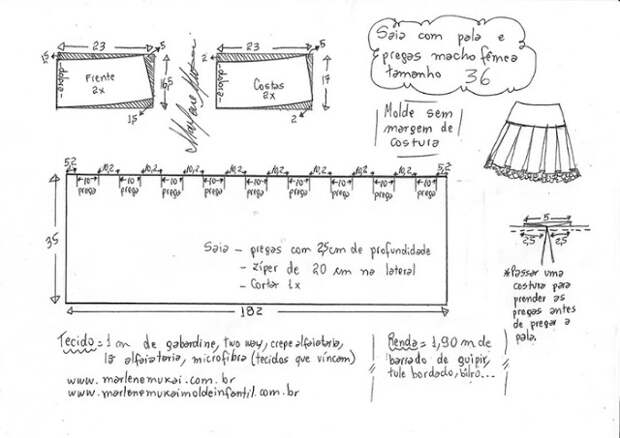 Saia com pala e
pregas macho fêmea
tamanho 36
23
5
1,5
dobra
Frente
2x
16,5
1,5
23
5
2
dobra
Costas
2x
17
2
Marlene Mukai
Molde sem
margem de
costura
5,2 10,2 10,2 10,2 10,2 10,2 10,2 10,2 10,2 5,2
10 10 10 10 10 10 10 10 10
prega prega prega prega prega prega prega prega prega
35
Saia - pregas com 2,5cm de profundidade
- zíper de 20 cm na lateral
- Cortar 1x
182
5
2,5 2,5
*Passar uma
costura para
prender as
pregas antes
de pregar a
pala.
Tecido = 1 m de gabardine, two way, crepe alfaiataria,
lã alfaiataria, microfibra (tecidos que vincam)
www.marlenemukai.com.br
www.marlenemukaimoldeinfantil.com.br
Renda = 1,90 m de
barrado de guipir,
tule bordado, bilro...